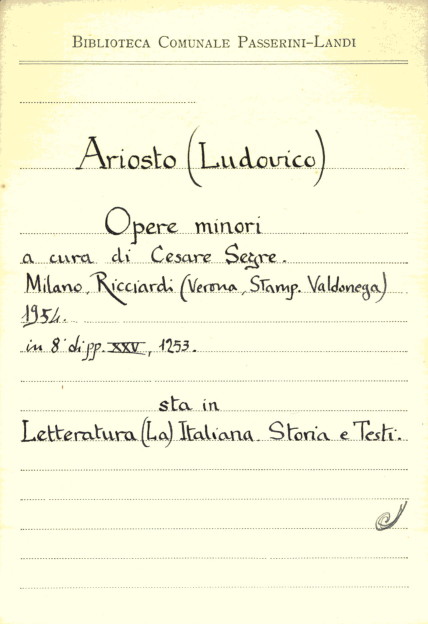 BIBLIOTECA COMUNALE PASSERINI-LANDI
Ariosto (Ludovico)
Opere minori
a cura di Cesare Segre.
Milano, Ricciardi (Verona, Stamp. Valdonega)
1954.
in 8° di pp. XXV, 1253.
sta in
Letteratura (La) Italiana. Storia e Testi.